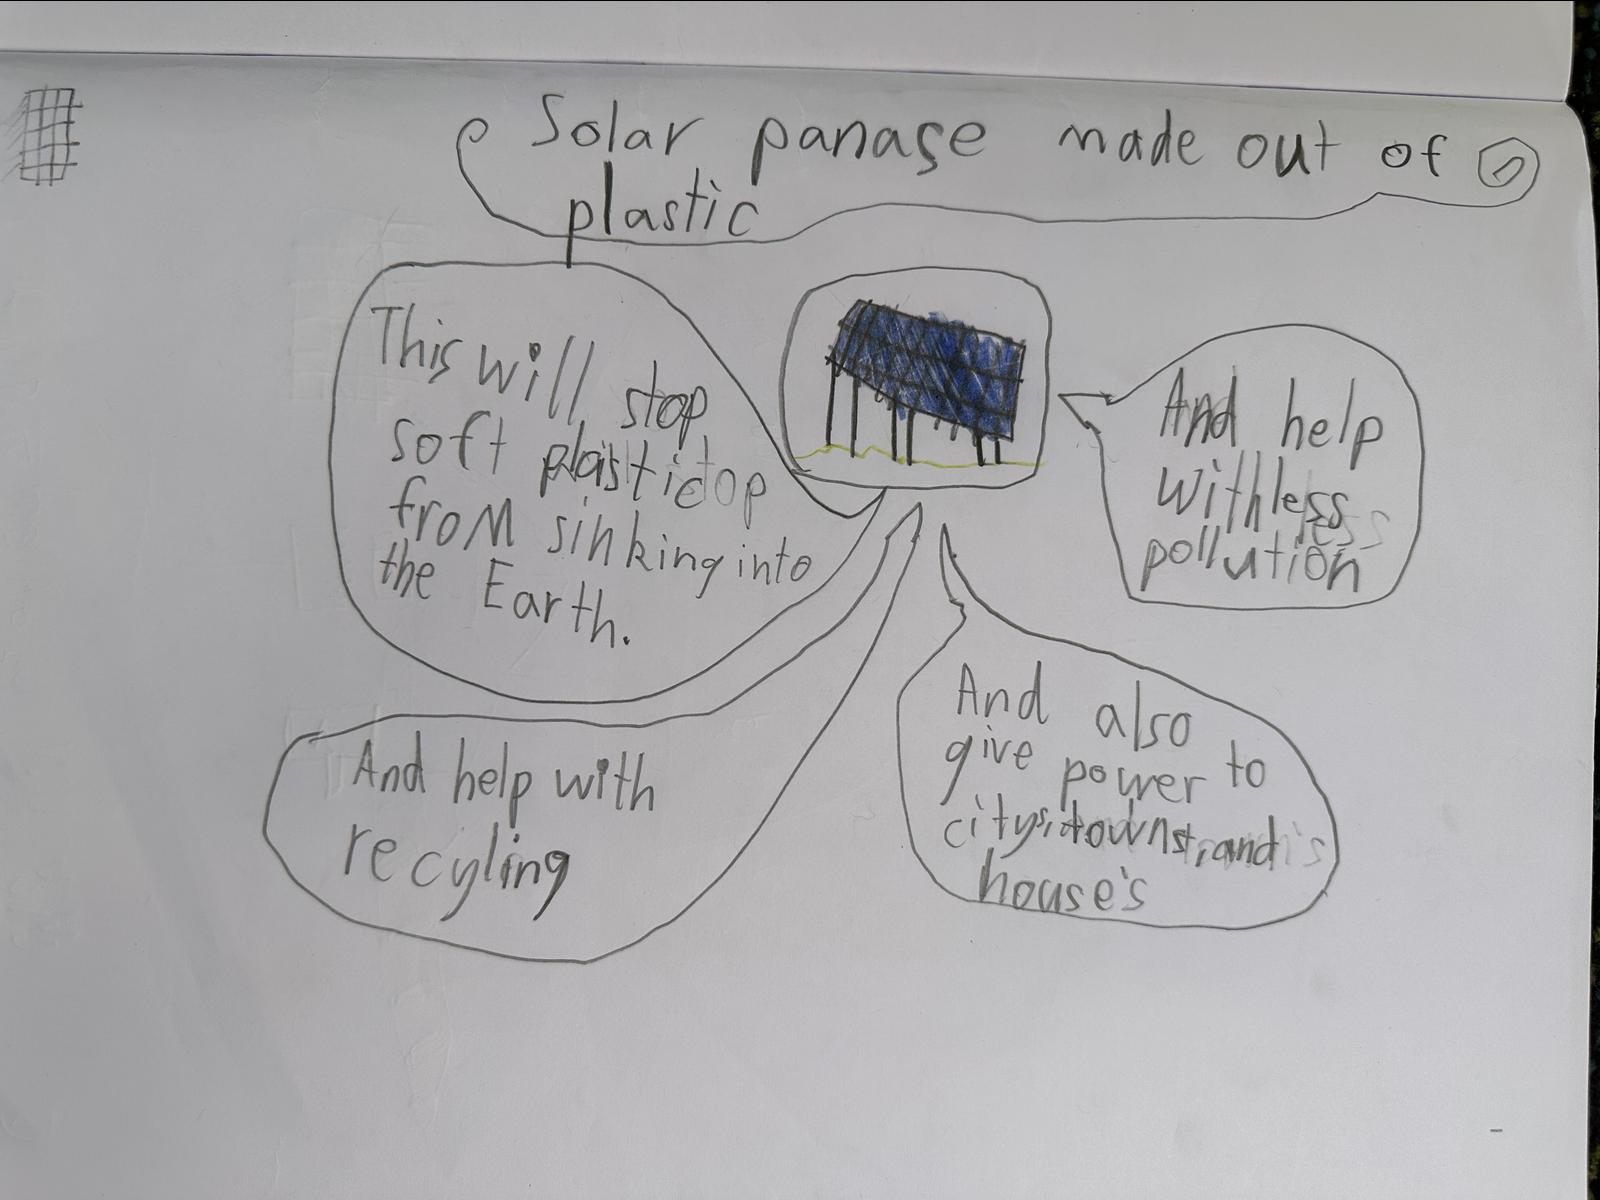 Solar panase made out of
plastic
This will stop
soft plastic
from sinking into
the Earth.
And help
with less
pollution
And help with
recyling
And also
give power to
citys, towns, and
house's